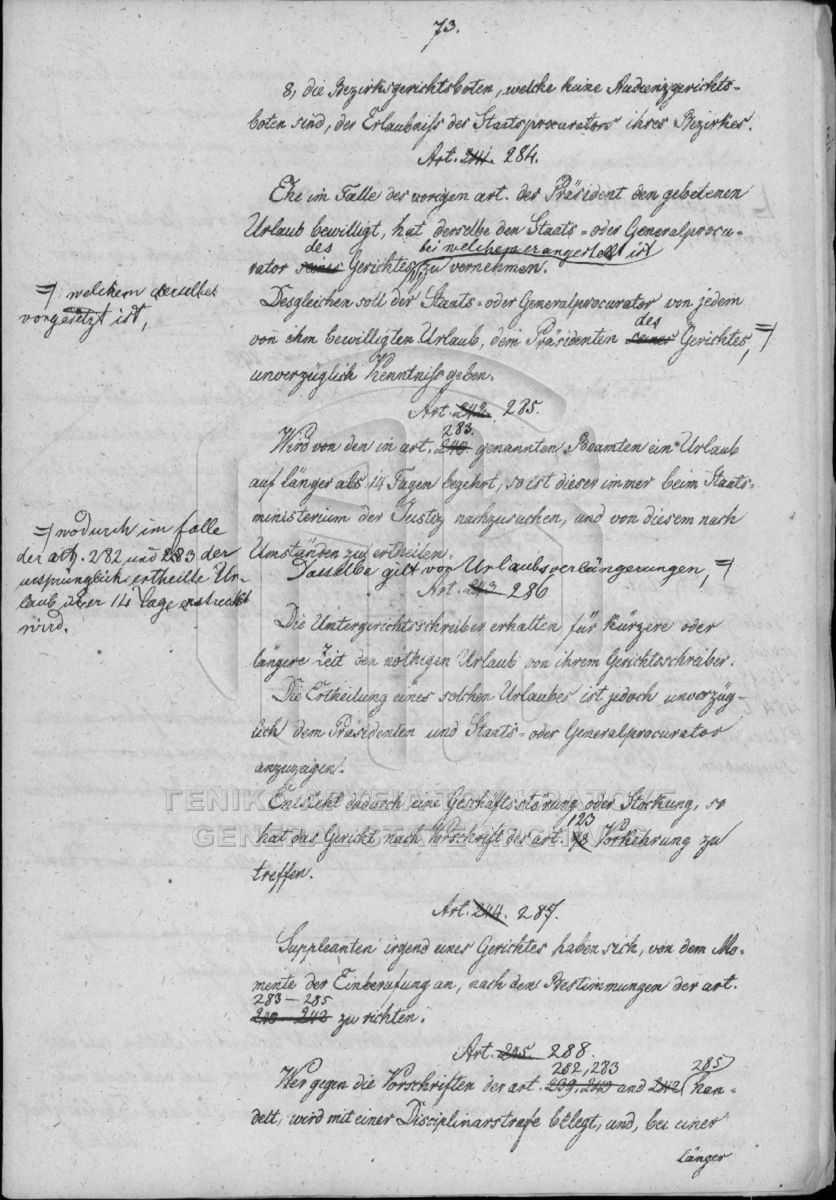 73.
8, die Bezirksgerichtsboten, welche keine Audienzgerichts-
boten sind, der Erlaubniß des Staatsprocurators ihres Bezirkes.
Art. 241. 284.
Ehe im Falle des vorigen art. der Präsident den gebetenen
Urlaub bewilligt, hat derselbe den Staats- oder Generalprocu-
des bei welchem er angestellt ist
rator seines Gerichtes, zu vernehmen.
Desgleichen soll der Staats- oder Generalprocurator von jedem
des
von ihm bewilligten Urlaub, dem Präsidenten seines Gerichtes,
=| welchem derselbe
vorgesetzt ist,
unverzüglich Kenntniß geben.
Art. 242. 285.
283.
Wird von den in art. 240. genannten Beamten ein Urlaub
auf länger als 14 Tagen begehrt, so ist dieser immer beim Staats-
ministerium der Justiz nachzusuchen, und von diesem nach
Umständen zu ertheilen.
Dasselbe gilt von Urlaubsverlängerungen, =|
=| wodurch im Falle
der art. 282 und 283 der
ursprünglich ertheilte Ur-
laub über 14 Tage erstreckt
wird.
Art. 243 286
Die Untergerichtsschreiber erhalten für kürzere oder
längere Zeit den nöthigen Urlaub von ihrem Gerichtsschreiber.
Die Ertheilung eines solchen Urlaubes ist jedoch unverzüg-
lich dem Präsidenten und Staats- oder Generalprocurator
anzuzeigen.
Entsteht dadurch eine Geschäftsstörung oder Stockung, so
123
hat das Gericht nach Vorschrift des art. Vorkehrung zu
treffen.
ΓΕΝΙΚΑ ΑΡΧΕΙΑ ΤΟΥ ΚΡΑΤΟΥΣ
GENERAL STATE ARCHIVES
Art. 244. 287.
Suppleanten irgend eines Gerichtes haben sich, von dem Mo-
mente der Einberufung an, nach den Bestimmungen der art.
283 – 285
240 – 242 zu richten.
Art. 245. 288.
282, 283 285
Wer gegen die Vorschriften der art. 239, 240 und 242 han-
delt, wird mit einer Disciplinarstrafe belegt, und, bei einer
länger